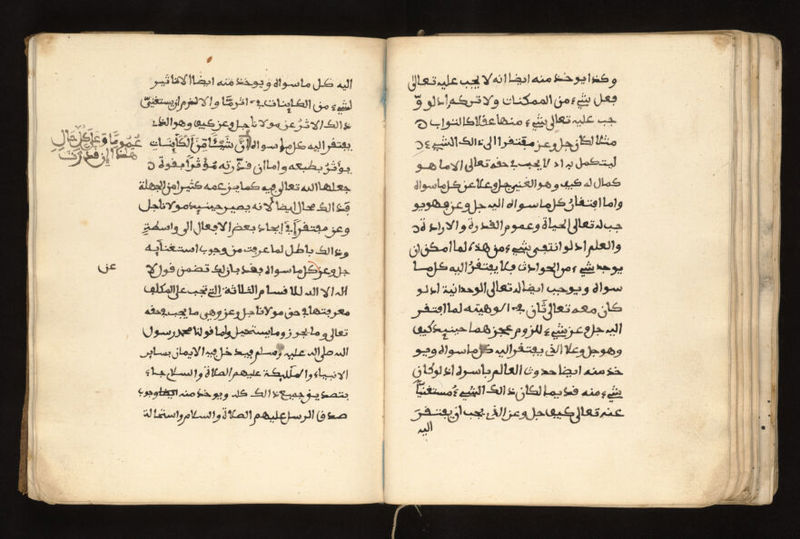 وكذا يوخذ منه ايضا انه لا يجب عليه تعالى
فعل شيء من الممكنات ولا تركه اذ لو و
جب عليه تعالى شيء منها عقلا كالثواب
مثلا لكان جل وعز مفتقرا الى ذالك الشيء
ليتكمل به اذ لا يجب في حقه تعالى الا ما هو
كمال له كيف وهو الغني جل وعلا عن كل ما سواه
واما افتقار كل ما سواه اليه جل وعز فهو يو
جب له تعالى الحياة وعموم القدرة والارادة
والعلم اذ لو انتفى شيء من هذه لما امكن ان
يوجد شيء من الحوادث فلا يفتقر اليه كل ما
سواه ويوجب ايضا له تعالى الوحدانية اذ لو
كان معه تعالى ثان في الوهيته لما افتقر
اليه جل وعز شيء للزوم عجزهما حينيذ كيف
وهو جل وعلا الذي يفتقر اليه كل ما سواه ويو
خذ منه ايضا حدوث العالم باسره اذ لو كان
شيء منه قديما لكان ذالك الشيء مستغنيا
عنه تعالى كيف جل وعز الذي يجب ان يفتقر
اليه
اليه كل ما سواه ويوخذ منه ايضا الا تاثير
لشيء من الكاينات في اثر ما والا لزم ان يستغني
ذالك الاثر عن مولانا جل وعز كيف وهو الذي
يفتقر اليه كل ما سواه ان شيئا من الكاينات
عموما وعلى كل حال
هذا ان قدرت
يوثر بطبعه واما ان قدرته موثرا بقوة
جعلها الله تعالى فيه كما يزعمه كثير من الجهلة
فذالك محال ايضا لانه يصير حينيذ مولانا جل
وعز مفتقرا في ايجاد بعض الافعال الى واسطة
وذالك باطل لما عرفت من وجوب استغنايه
جل وعز كل ما سواه فقد بان لك تضمن قول لا
عن
اله الا الله للاقسام الثلاثة التي تجب على المكلف
معرفتها في حق مولانا جل وعز وهي ما يجب في حقه
تعالى وما يجوز وما يستحيل واما قولنا محمد رسول
الله صلى الله عليه وسلم فيدخل فيه الايمان بساير
الانبياء والمليكة عليهم الصلاة والسلام جاء
بتصديق جميع ذالك كله ويوخذ منه وجوب
صدق الرسل عليهم الصلاة والسلام واستحالة